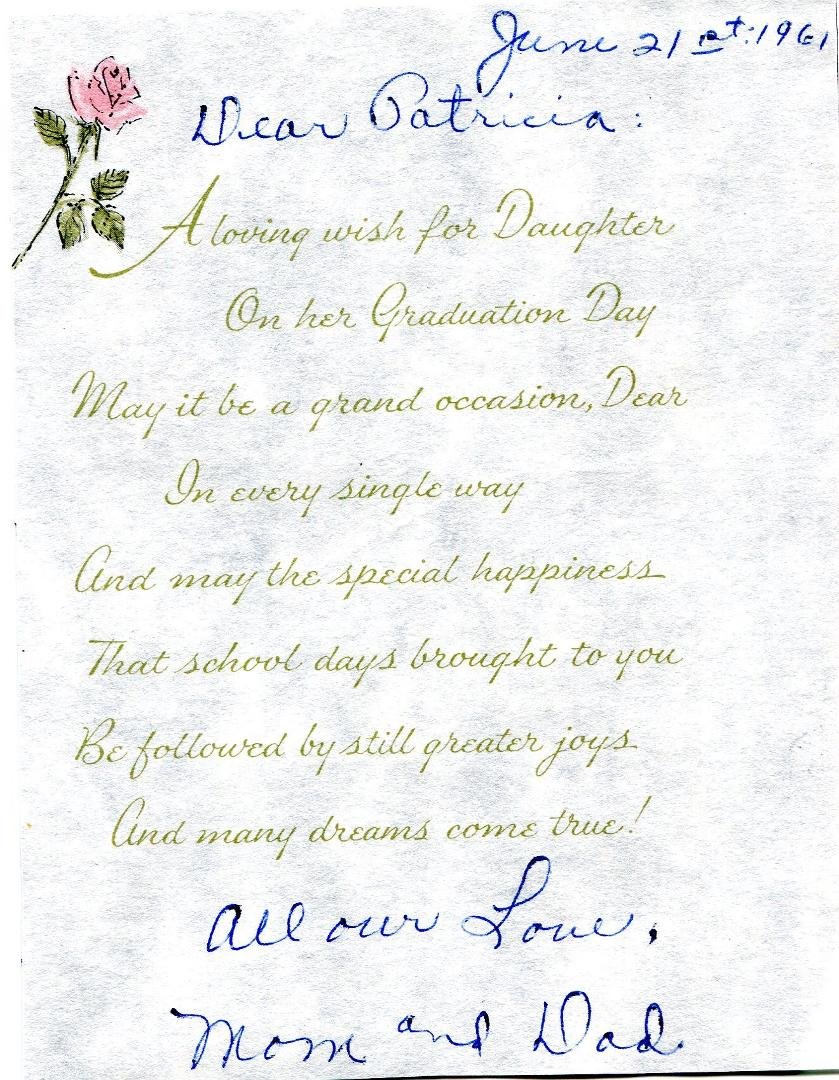 June 21st. 1961
Dear Patricia:
A loving wish for Daughter
On her Graduation Day
May it be a grand occasion, Dear
In every single way
And may the special happiness
That school days brought to you
Be followed by still greater joys
And many dreams come true!
All our Love,
Mom and Dad